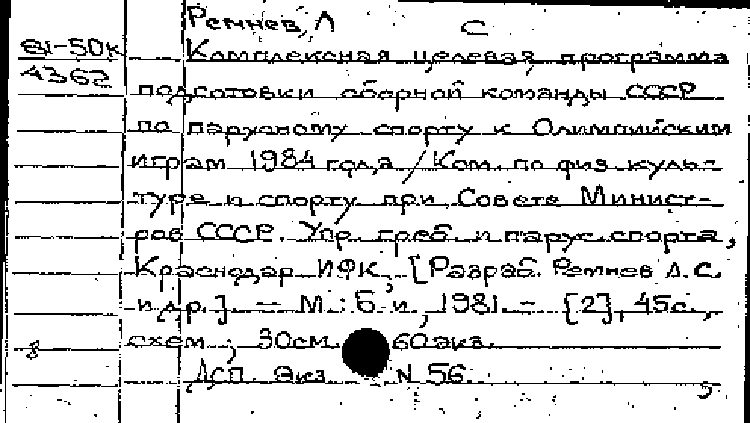 Ремнев, Л С
81-50к
4362
Комплексная целевая программа
подготовки сборной команды СССР
по парусному спорту к Олимпийским
играм 1984 года / Ком. по физ. куль-
туре и спорту при Совете Минист-
ров СССР. Упр. греб. и парус. спорта,
Краснодар. ИФК; [Разраб. Ремнев Л.С.
и др.]. - М.: Б. и., 1981. - [2], 45с.,
схем.; 30см. 60 экз.
8
Дсп. Экз. N 56